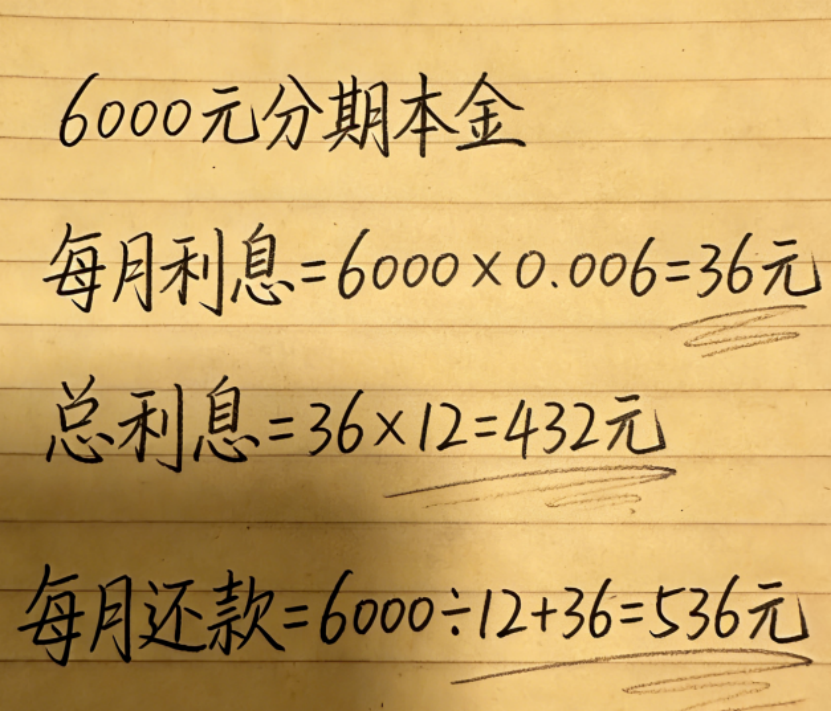 6000元分期本金
每月利息=6000×0.006=36元
总利息=36×12=432元
每月还款=6000÷12+36=536元